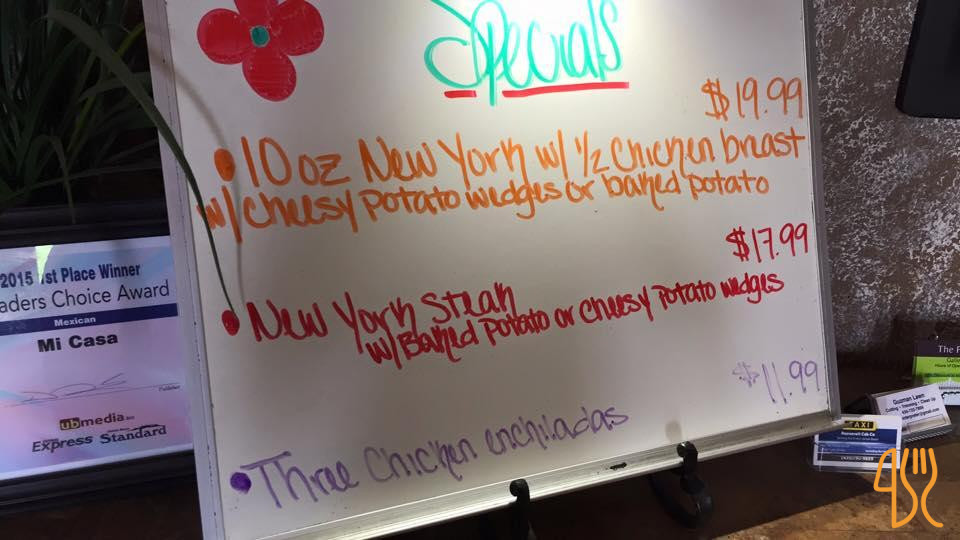 Specials
$19.99
• 10 oz New York w/ 1/2 Chicken breast
w/ cheesy potato wedges or baked potato
$17.99
• New York Steak
w/ Baked Potato or cheesy potato wedges
$11.99
• Three Chicken enchiladas
2015 1st Place Winner
aders Choice Award
Mexican
Mi Casa
ubmedia
Express Standard
The
Guzman Lawn
TAXI